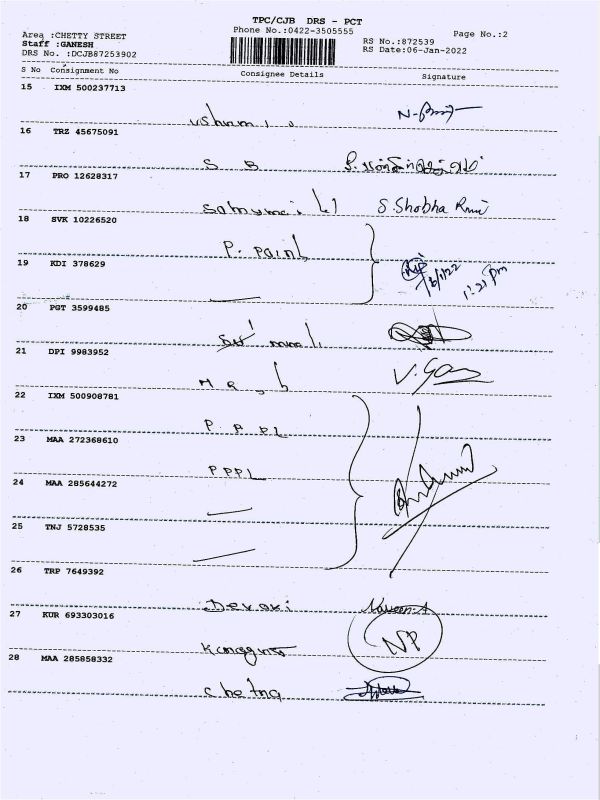 TPC/CJB DRS - PCT
Area :CHETTY STREET
Phone No.:0422-3505555
Page No.:2
Staff :GANESH
RS No.:872539
DRS No. :DCJB87253902
RS Date:06-Jan-2022
S No Consignment No Consignee Details Signature
15 IXM 500237713
16 TRZ 45675091
S B
17 PRO 12628317
S. Shobha
18 SVK 10226520
P. Paint
19 KDI 378629
6/1/22
1:21 pm
20 PGT 3599485
21 DPI 9983952
22 IXM 500908781
P. P P L
23 MAA 272368610
P P P L
24 MAA 285644272
25 TNJ 5728535
26 TRP 7649392
Devaki
27 KUR 693303016
NP
28 MAA 285858332
Chetna